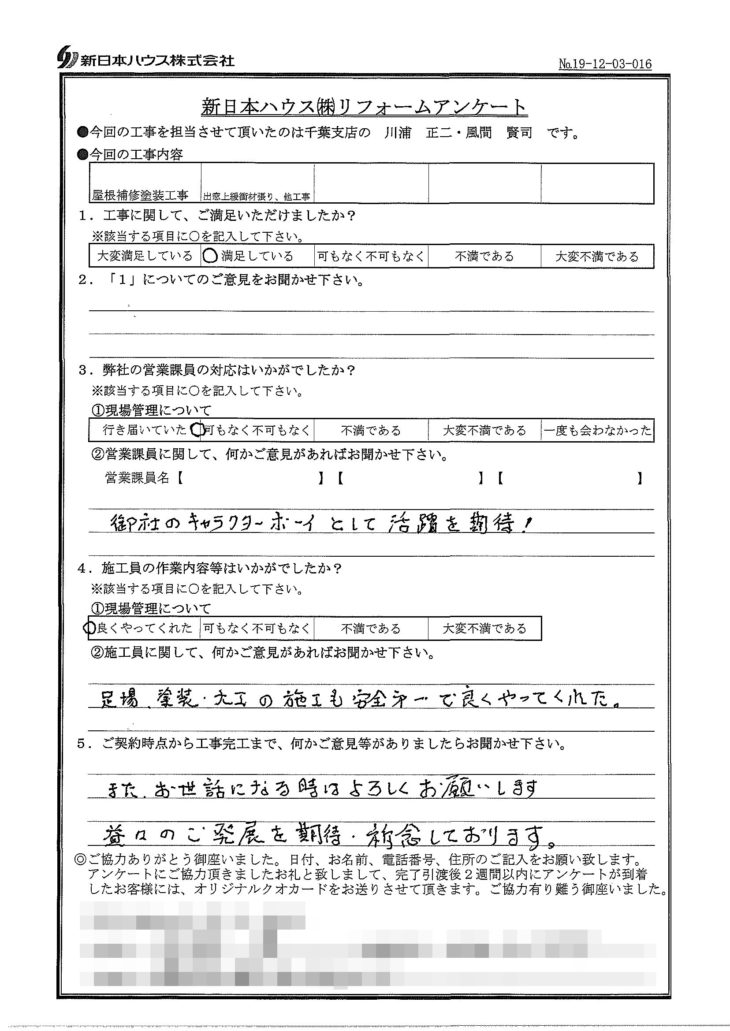 新日本ハウス株式会社
No.19-12-03-016
新日本ハウス㈱リフォームアンケート
●今回の工事を担当させて頂いたのは千葉支店の 川浦 正二・風間 賢司 です。
●今回の工事内容
屋根補修塗装工事 出窓上緩衝材張り、他工事
1．工事に関して、ご満足いただけましたか？
※該当する項目に○を記入して下さい。
大変満足している ○ 満足している 可もなく不可もなく 不満である 大変不満である
2．「1」についてのご意見をお聞かせ下さい。
3．弊社の営業課員の対応はいかがでしたか？
※該当する項目に○を記入して下さい。
①現場管理について
行き届いていた ○ 可もなく不可もなく 不満である 大変不満である 一度も会わなかった
②営業課員に関して、何かご意見があればお聞かせ下さい。
営業課員名【 】【 】【 】
御社のキャラクターボーイとして活躍を期待！
4．施工員の作業内容等はいかがでしたか？
※該当する項目に○を記入して下さい。
①現場管理について
○良くやってくれた 可もなく不可もなく 不満である 大変不満である
②施工員に関して、何かご意見があればお聞かせ下さい。
足場、塗装・大工の施工も安全第一で良くやってくれた。
5．ご契約時点から工事完工まで、何かご意見等がありましたらお聞かせ下さい。
また、お世話になる時はよろしくお願いします
益々のご発展を期待・祈念しております。
◎ご協力ありがとう御座いました。日付、お名前、電話番号、住所のご記入をお願い致します。
アンケートにご協力頂きましたお礼と致しまして、完了引渡後2週間以内にアンケートが到着
したお客様には、オリジナルクオカードをお送りさせて頂きます。ご協力有り難う御座いました。